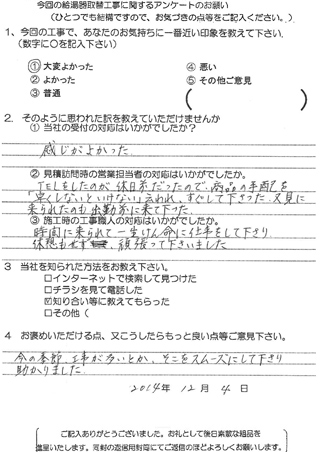 今回の給湯器取替工事に関するアンケートのお願い
（ひとつでも結構ですので、お気づきの点等をご記入ください。）
1、今回の工事で、あなたのお気持ちに一番近い印象を教えて下さい。
（数字に○を記入下さい）
① 大変よかった ④ 悪い
② よかった ⑤ その他ご意見
③ 普通
2．そのように思われた訳を教えていただけませんか
① 当社の受付の対応はいかがでしたか？
感じがよかった
② 見積訪問時の営業担当者の対応はいかがでしたか。
TELをしたのが休日前だったので、商品の手配を
早くしないといけない」言われ、すぐして下さった、又見に
来られたのも出勤前に来て下った
③ 施工時の工事職人の対応はいかがでしたか。
時間に来られて一生けん命に仕事をして下さり
休憩もせず、頑張って下さいました
3 当社を知られた方法をお教え下さい。
□インターネットで検索して見つけた
□チラシを見て電話した
☑知り合い等に教えてもらった
□その他（
4 お褒めいただける点、又こうしたらもっと良い点等ご意見下さい。
今の季節、工事が多いとか、そこをスムーズにして下さり
助かりました
2014年 12月 4日
ご記入ありがとうございました。お礼として後日素敵な粗品を
進呈いたします。同封の返信用封筒にてご返信のほどよろしくお願いします。